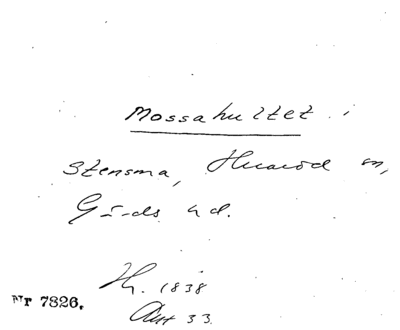 Mossahultet i
Stensma, Huaröd sn,
Gärds hd.
Hy. 1838
Akt 33.
Nr 7826.